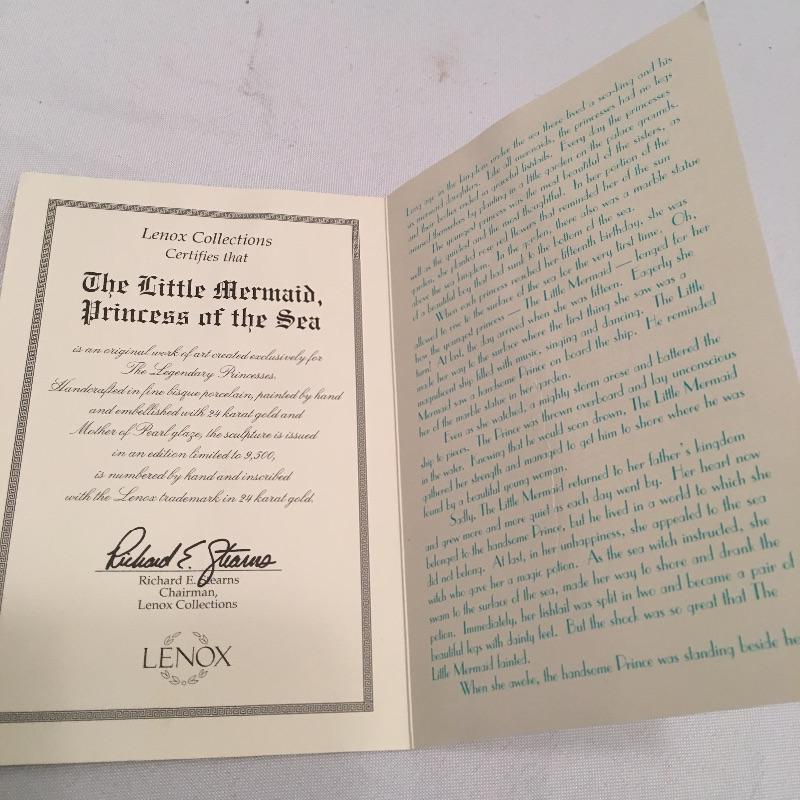 Lenox Collections
Certifies that
The Little Mermaid,
Princess of the Sea
is an original work of art created exclusively for
The Legendary Princesses.
Handcrafted in fine bisque porcelain, painted by hand
and embellished with 24 karat gold and
Mother of Pearl glaze, the sculpture is issued
in an edition limited to 9,500,
is numbered by hand and inscribed
with the Lenox trademark in 24 karat gold.
Richard E. Stearns
Richard E. Stearns
Chairman,
Lenox Collections
LENOX
Long ago in the kingdom under the sea there lived a sea-king and his
six mermaid daughters. Like all mermaids, the princesses had no legs
and their bodies ended in graceful fishtails. Every day the princesses
amused themselves by planting in a little garden on the palace grounds.
The youngest princess was the most beautiful of the sisters, as
well as the quietest and the most thoughtful. In her portion of the
garden, she planted rose red flowers that reminded her of the sun
above the sea kingdom. In the garden, there also was a marble statue
of a beautiful boy that had sunk to the bottom of the sea.
When each princess reached her fifteenth birthday, she was
allowed to rise to the surface of the sea for the very first time. Oh,
how the youngest princess — The Little Mermaid — longed for her
turn! At last, the day arrived when she was fifteen. Eagerly she
made her way to the surface where the first thing she saw was a
magnificent ship filled with music, singing and dancing. The Little
Mermaid saw a handsome Prince on board the ship. He reminded
her of the marble statue in her garden.
Even as she watched, a mighty storm arose and battered the
ship to pieces. The Prince was thrown overboard and lay unconscious
in the water. Knowing that he would soon drown, The Little Mermaid
gathered her strength and managed to get him to shore where he was
found by a beautiful young woman.
Sadly, The Little Mermaid returned to her father's kingdom
and grew more and more quiet as each day went by. Her heart now
belonged to the handsome Prince, but he lived in a world to which she
did not belong. At last, in her unhappiness, she appealed to the sea
witch who gave her a magic potion. As the sea witch instructed, she
swam to the surface of the sea, made her way to shore and drank the
potion. Immediately, her fishtail was split in two and became a pair of
beautiful legs with dainty feet. But the shock was so great that The
Little Mermaid fainted.
When she awoke, the handsome Prince was standing beside he